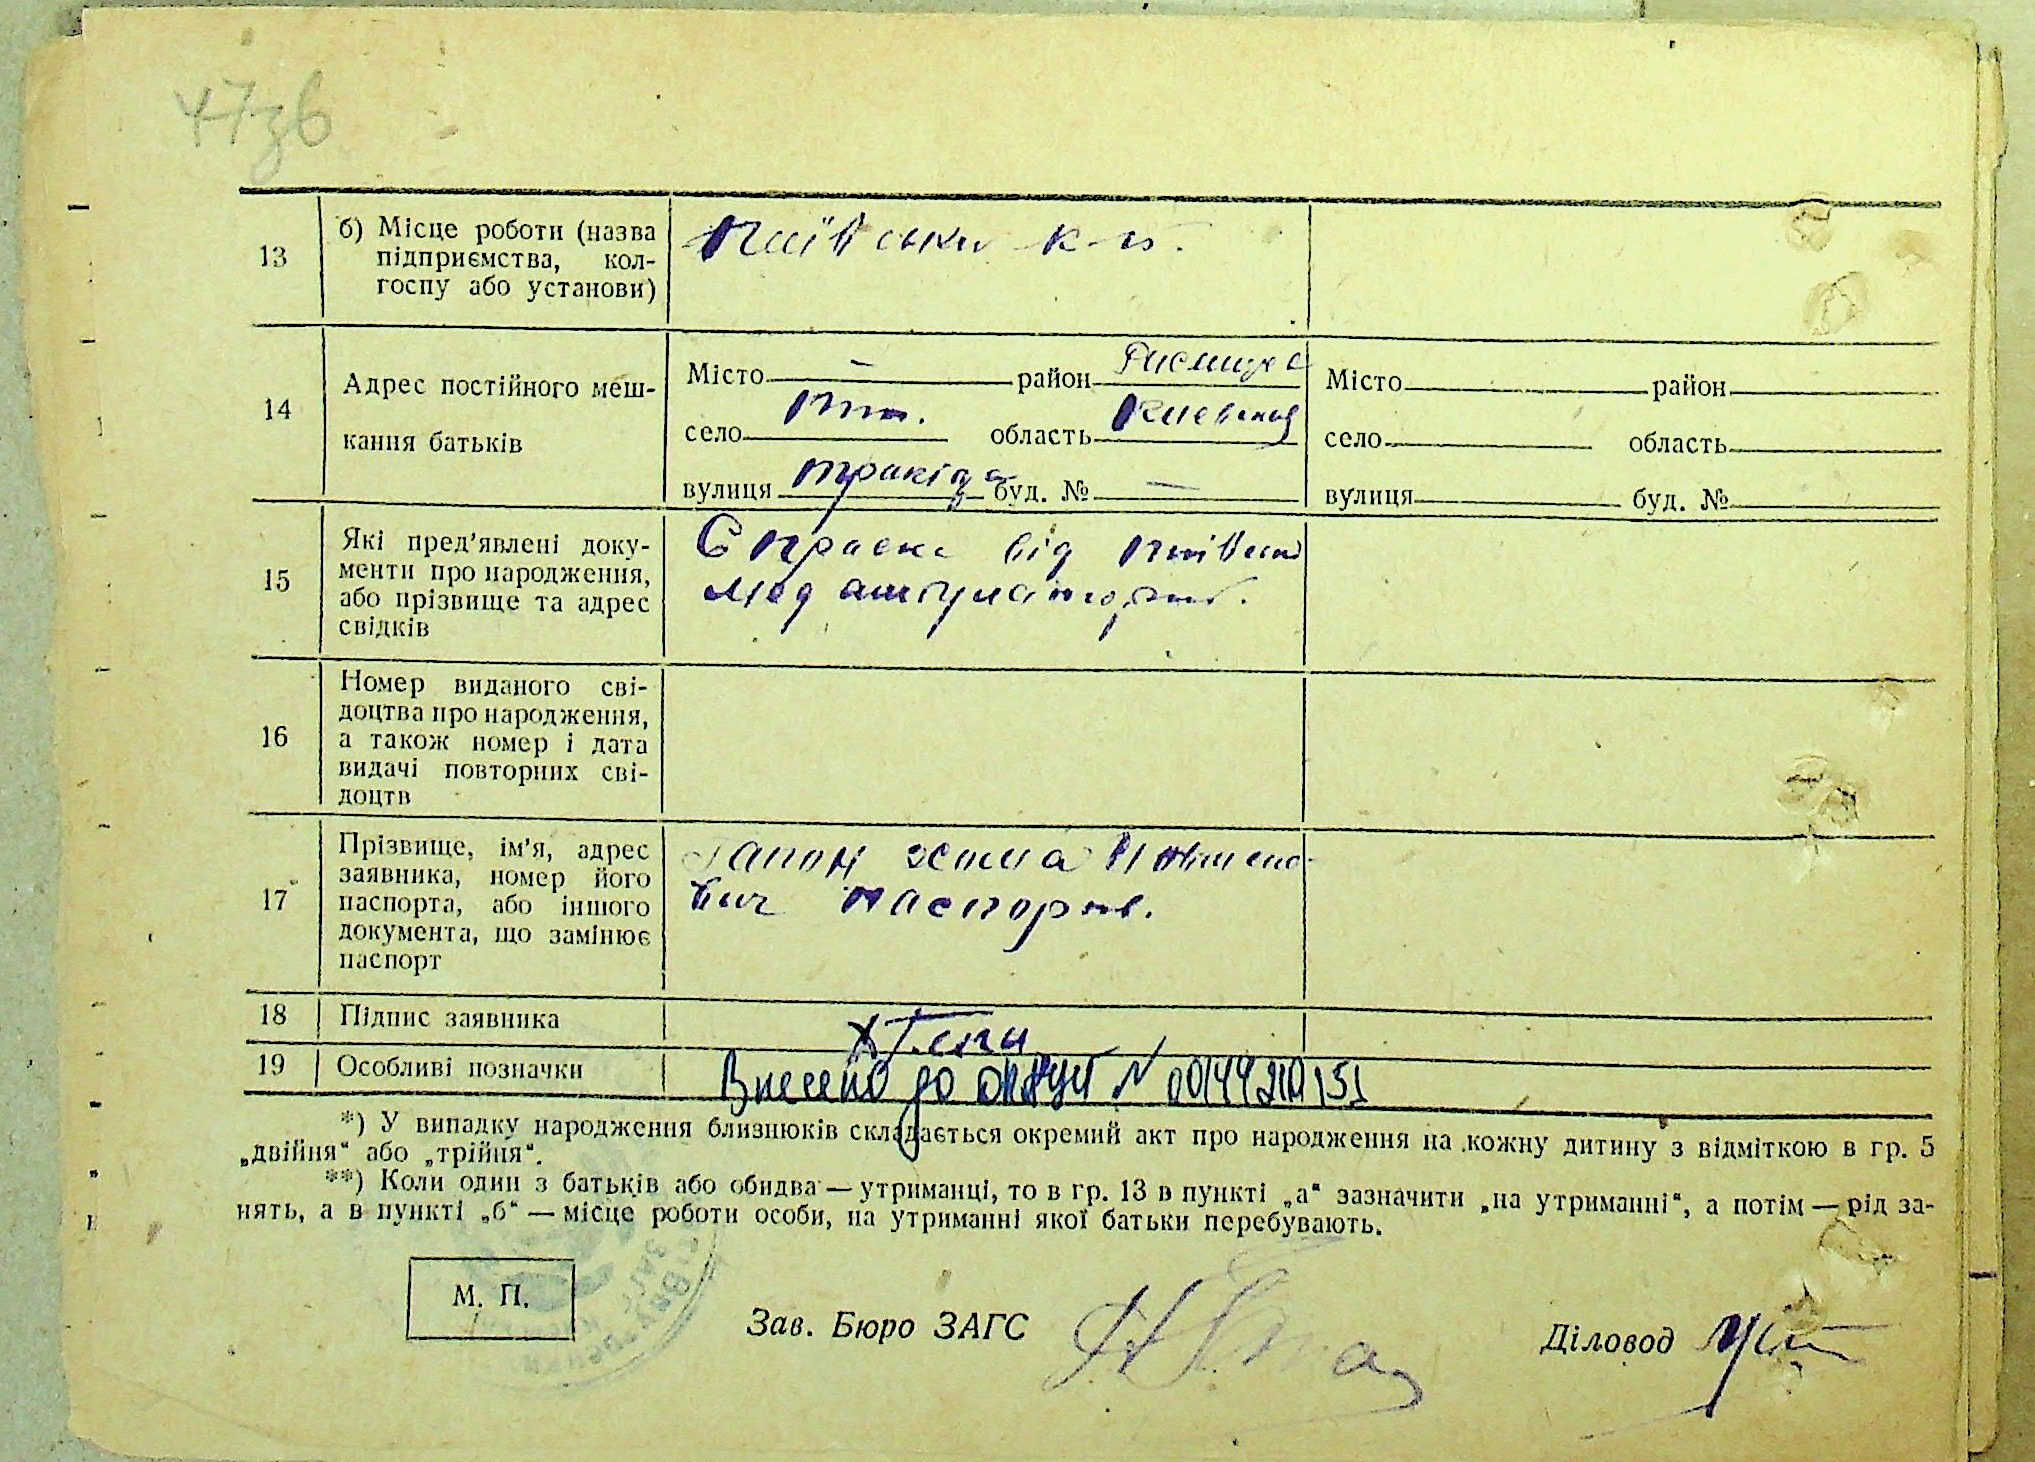 47зв
13
б) Місце роботи (назва
підприємства, кол-
госпу або установи)
14
Адрес постійного меш-
кання батьків
Місто — район
село область Киевская
вулиця буд. № —
Місто район
село область
вулиця буд. №
15
Які пред'явлені доку-
менти про народження,
або прізвище та адрес
свідків
Справка від
мед амбулаторії.
16
Номер виданого сві-
доцтва про народження,
а також номер і дата
видачі повторних сві-
доцтв
17
Прізвище, ім'я, адрес
заявника, номер його
паспорта, або іншого
документа, що замінює
паспорт
Гапон Хома
вич паспорт.
18
Підпис заявника
19
Особливі позначки
Внесено до ДРАЦСГ N 00144210151
*) У випадку народження близнюків складається окремий акт про народження на кожну дитину з відміткою в гр. 5
„двійня“ або „трійня“.
**) Коли один з батьків або обидва — утриманці, то в гр. 13 в пункті „а“ зазначити „на утриманні“, а потім — рід за-
нять, а в пункті „б“ — місце роботи особи, на утриманні якої батьки перебувають.
М. П.
Зав. Бюро ЗАГС
Діловод